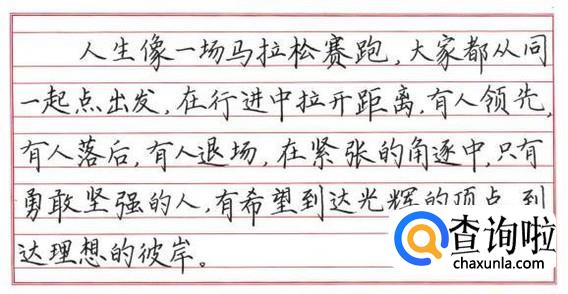 人生像一场马拉松赛跑,大家都从同
一起点出发,在行进中拉开距离,有人领先,
有人落后,有人退场,在紧张的角逐中,只有
勇敢坚强的人,有希望到达光辉的顶点,到
达理想的彼岸。
查询啦
chaxunla.com